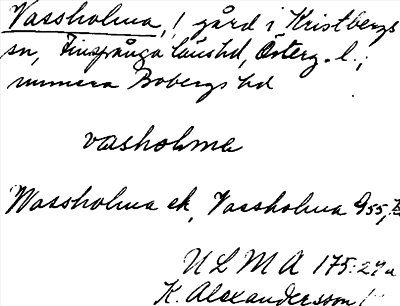 Vassholma, 1 gård i Kristbergs
sn, Finspånga länshd, Österg. l.;
numera Bobergs hd
vasholma
Wassholma ek, Vassholma G55,
ULMA 175:27a
K. Alexandersson